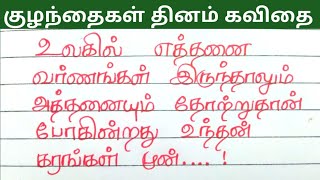 குழந்தைகள் தினம் கவிதை
உலகில் எத்தனை
வர்ணங்கள் இருந்தாலும்
அத்தனையும் தோற்றுதான்
போகின்றது உந்தன்
கரங்கள் முன்....!